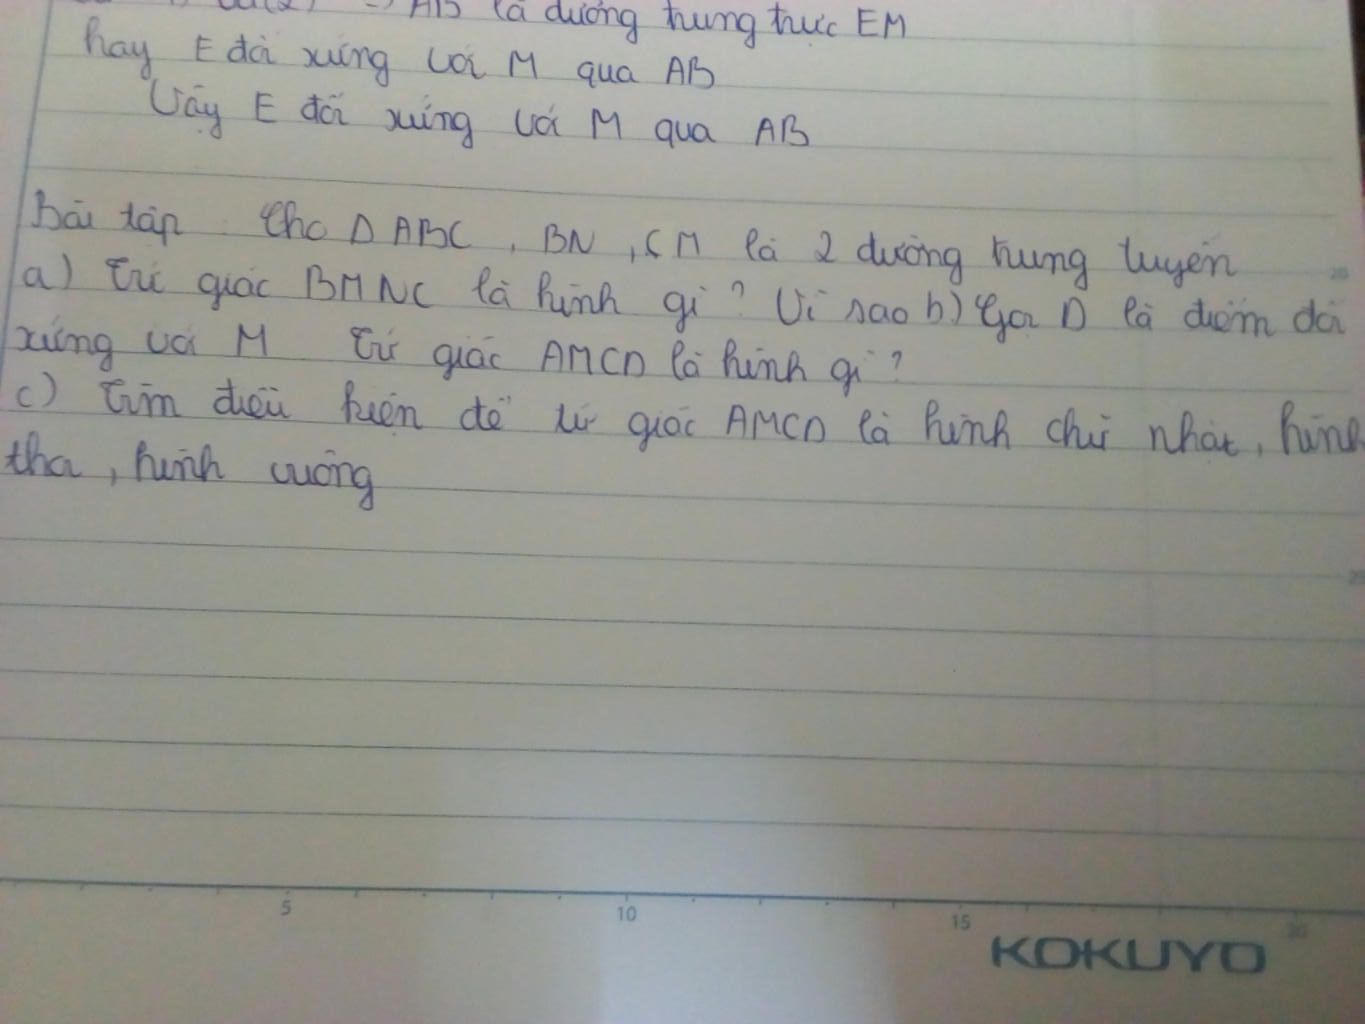 AB là đường trung trực EM
hay E đối xứng với M qua AB
Vậy E đối xứng với M qua AB
Bài tập Cho Δ ABC, BN, CM là 2 đường trung tuyến
a) Tứ giác BMNC là hình gì? Vì sao b) Gọi D là điểm đối
xứng với M Tứ giác AMCD là hình gì?
c) Tìm điều kiện để tứ giác AMCD là hình chữ nhật, hình
thoi, hình vuông
5 10 15 20
KOKUYO